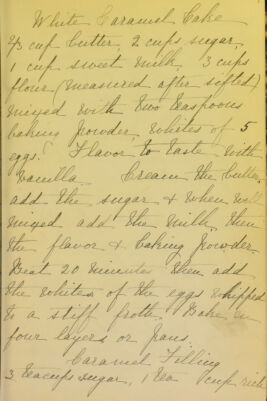 White Caramel Cake
2/3 cup butter, 2 cups sugar,
1 cup sweet milk, 3 cups
flour (measured after sifted)
mixed with two teaspoons
baking powder, whites of 5
eggs. Flavor to taste with
vanilla. Cream the butter
add the sugar & when well
mixed add the milk, then
the flavor & baking powder.
Beat 20 minutes then add
the whites of the eggs whipped
to a stiff froth. Bake in
four layers or pans.
Caramel Filling
3 teacups sugar, 1 tea cup rich